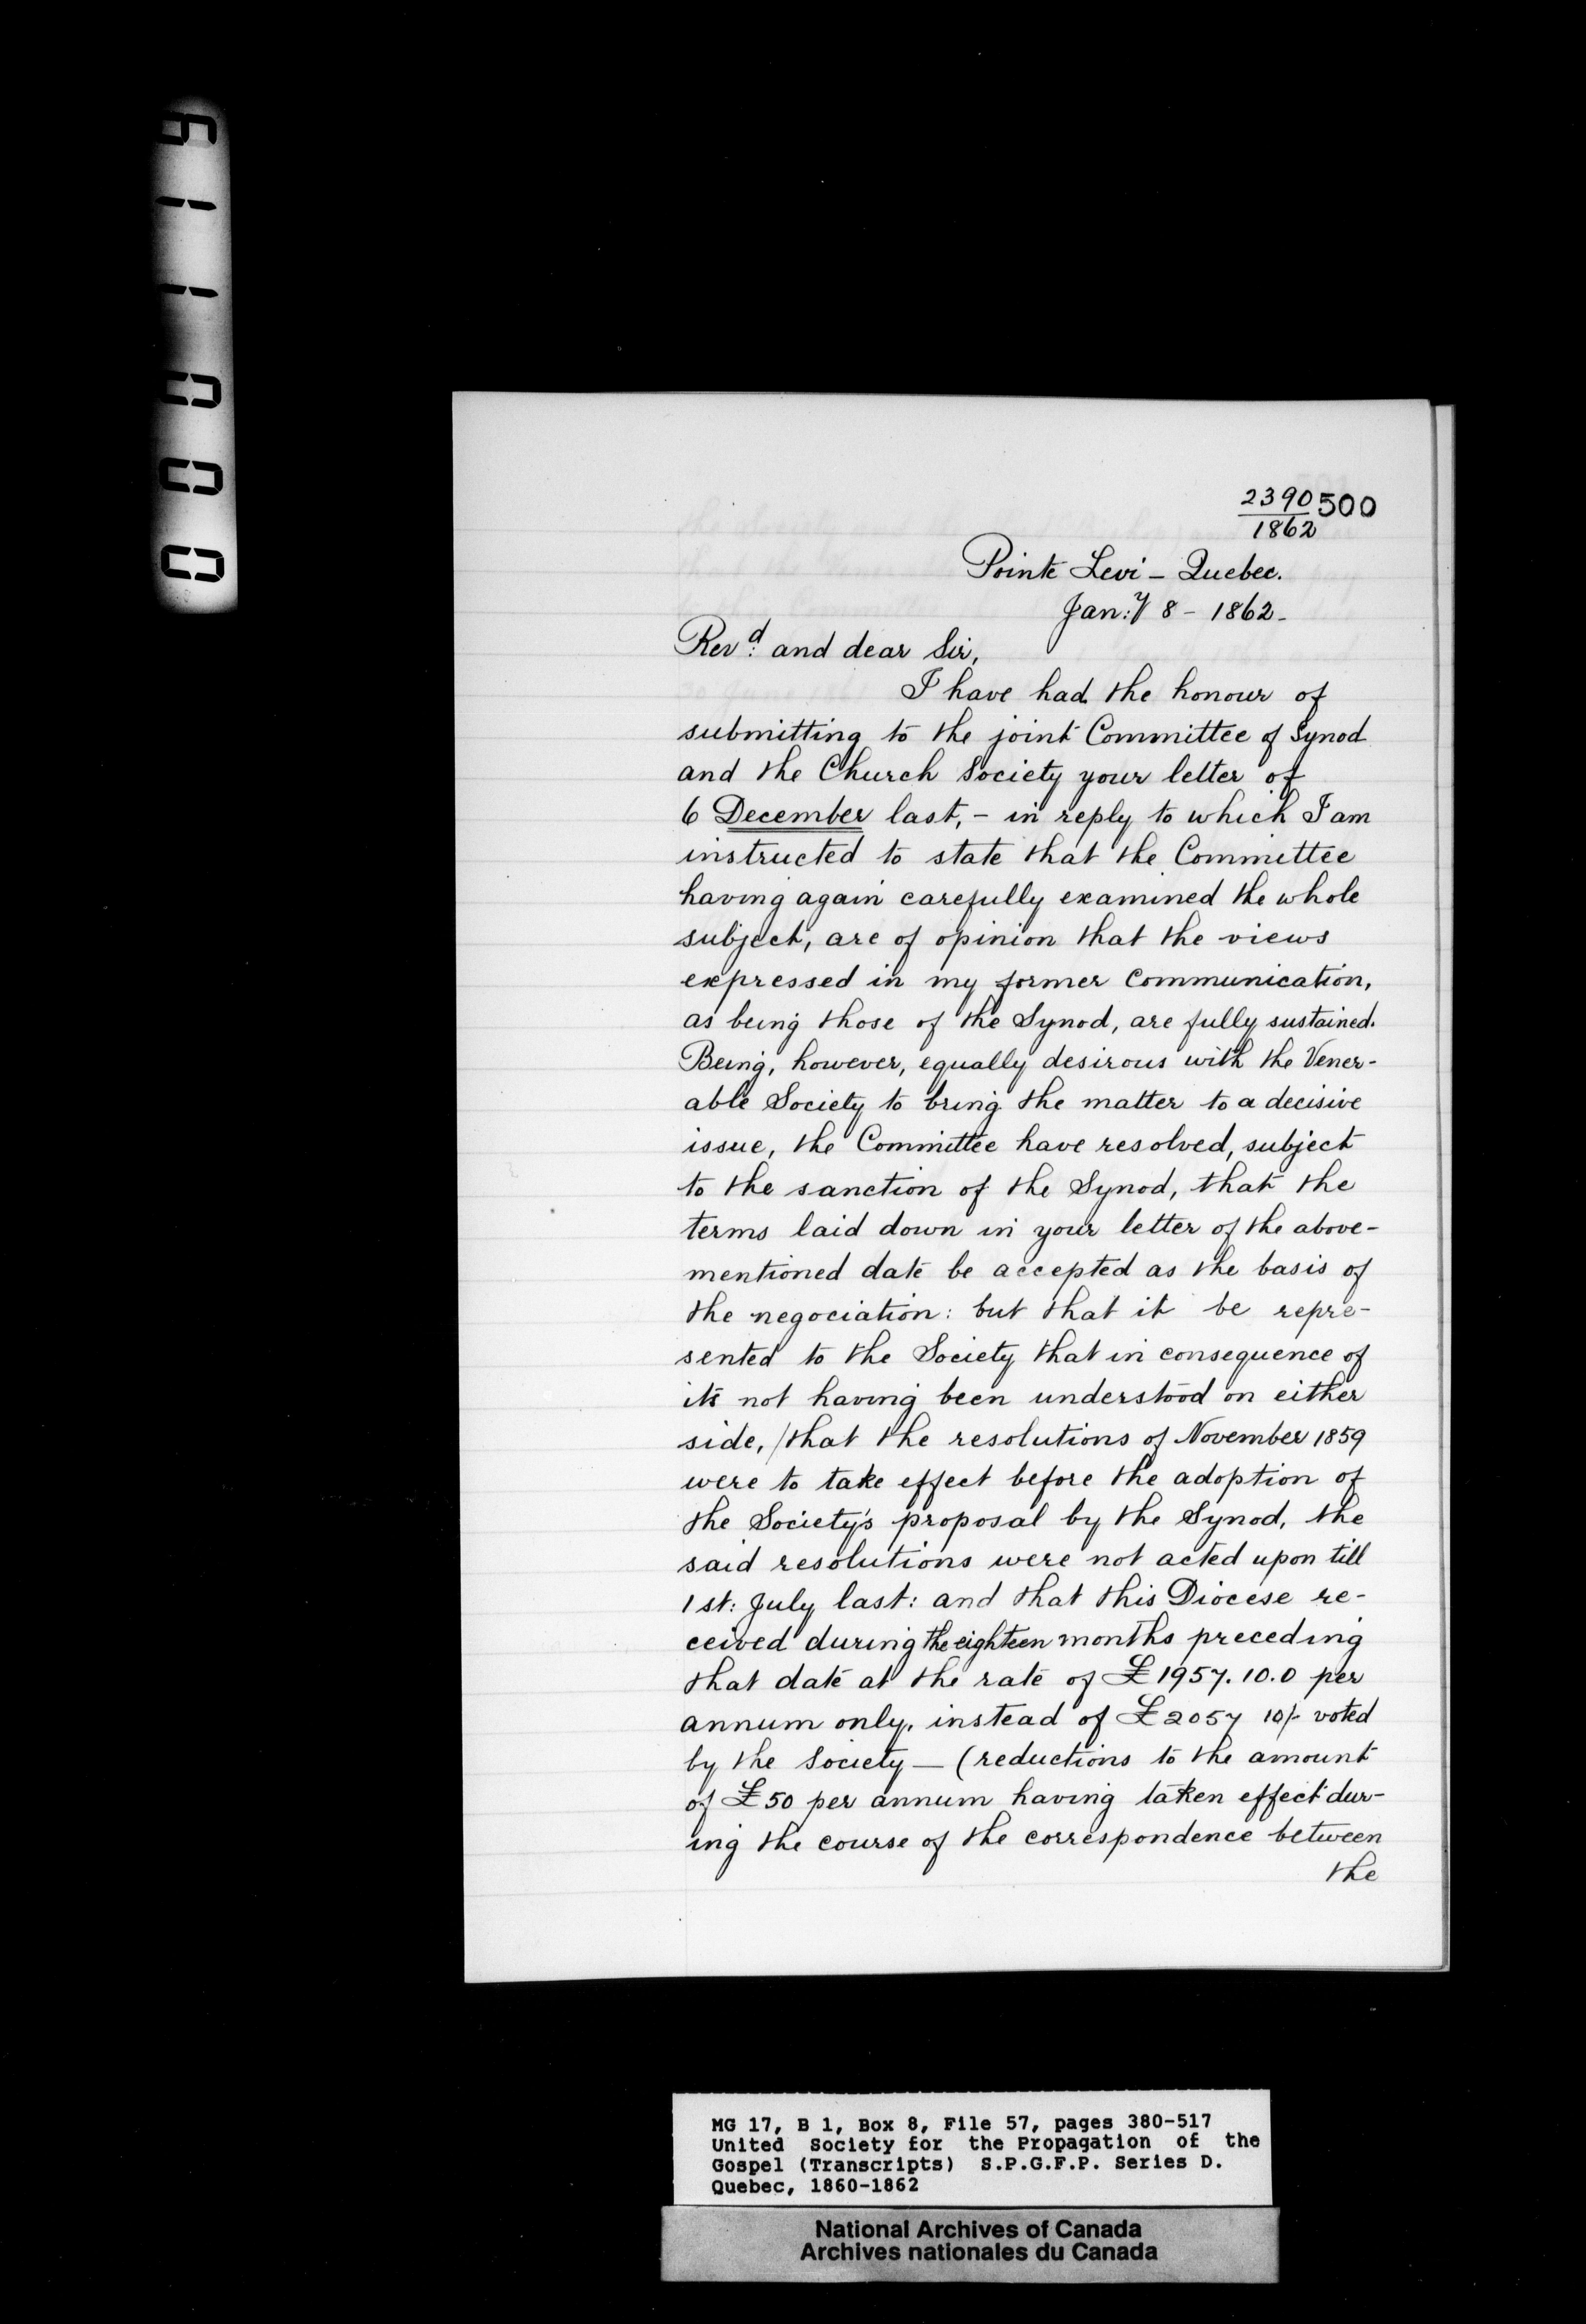 611000
2390 500
1862
Pointe Levi - Quebec.
Jan:y 8 - 1862 -
Revd: and dear Sir,
I have had the honour of
submitting to the joint Committee of Synod
and the Church Society your letter of
6 December last, - in reply to which I am
instructed to state that the Committee
having again carefully examined the whole
subject, are of opinion that the views
expressed in my former Communication,
as being those of the Synod, are fully sustained.
Being, however, equally desirous with the Vener-
able Society to bring the matter to a decisive
issue, the Committee have resolved, subject
to the sanction of the Synod, that the
terms laid down in your letter of the above-
mentioned date be accepted as the basis of
the negociation: but that it be repre-
sented to the Society that in consequence of
its not having been understood on either
side, /that the resolutions of November 1859
were to take effect before the adoption of
the Society's proposal by the Synod, the
said resolutions were not acted upon till
1st: July last: and that this Diocese re-
ceived during the eighteen months preceding
that date at the rate of £1957.10.0 per
annum only, instead of £2057 10/- voted
by the Society — (reductions to the amount
of £50 per annum having taken effect dur-
ing the course of the correspondence between
the
MG 17, B 1, Box 8, File 57, pages 380-517
United Society for the Propagation of the
Gospel (Transcripts) S.P.G.F.P. Series D.
Quebec, 1860-1862
National Archives of Canada
Archives nationales du Canada